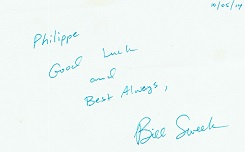 10/05/14
Philippe
Good Luck
and
Best Always,
Bill Sweek